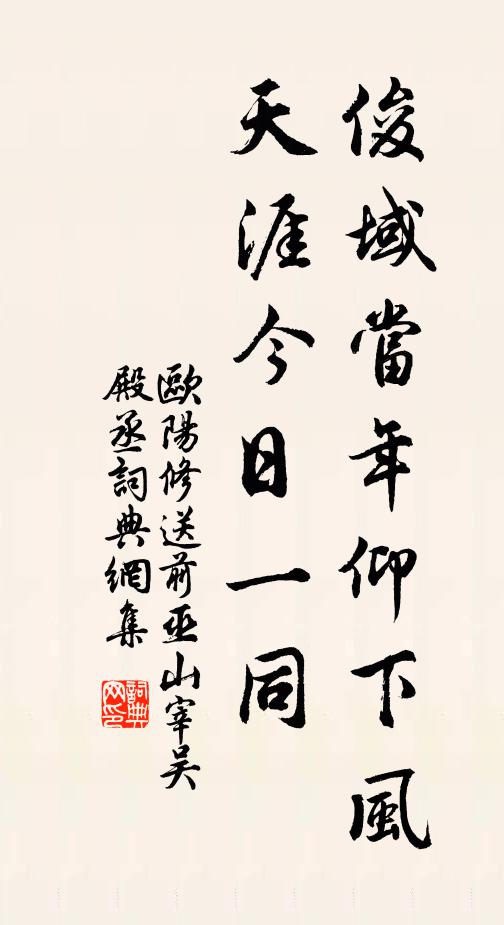 俊域當年仰下風
天涯今日一同
歐陽修送前巫山宰吳
殿丞詞典網集
詞典
网印